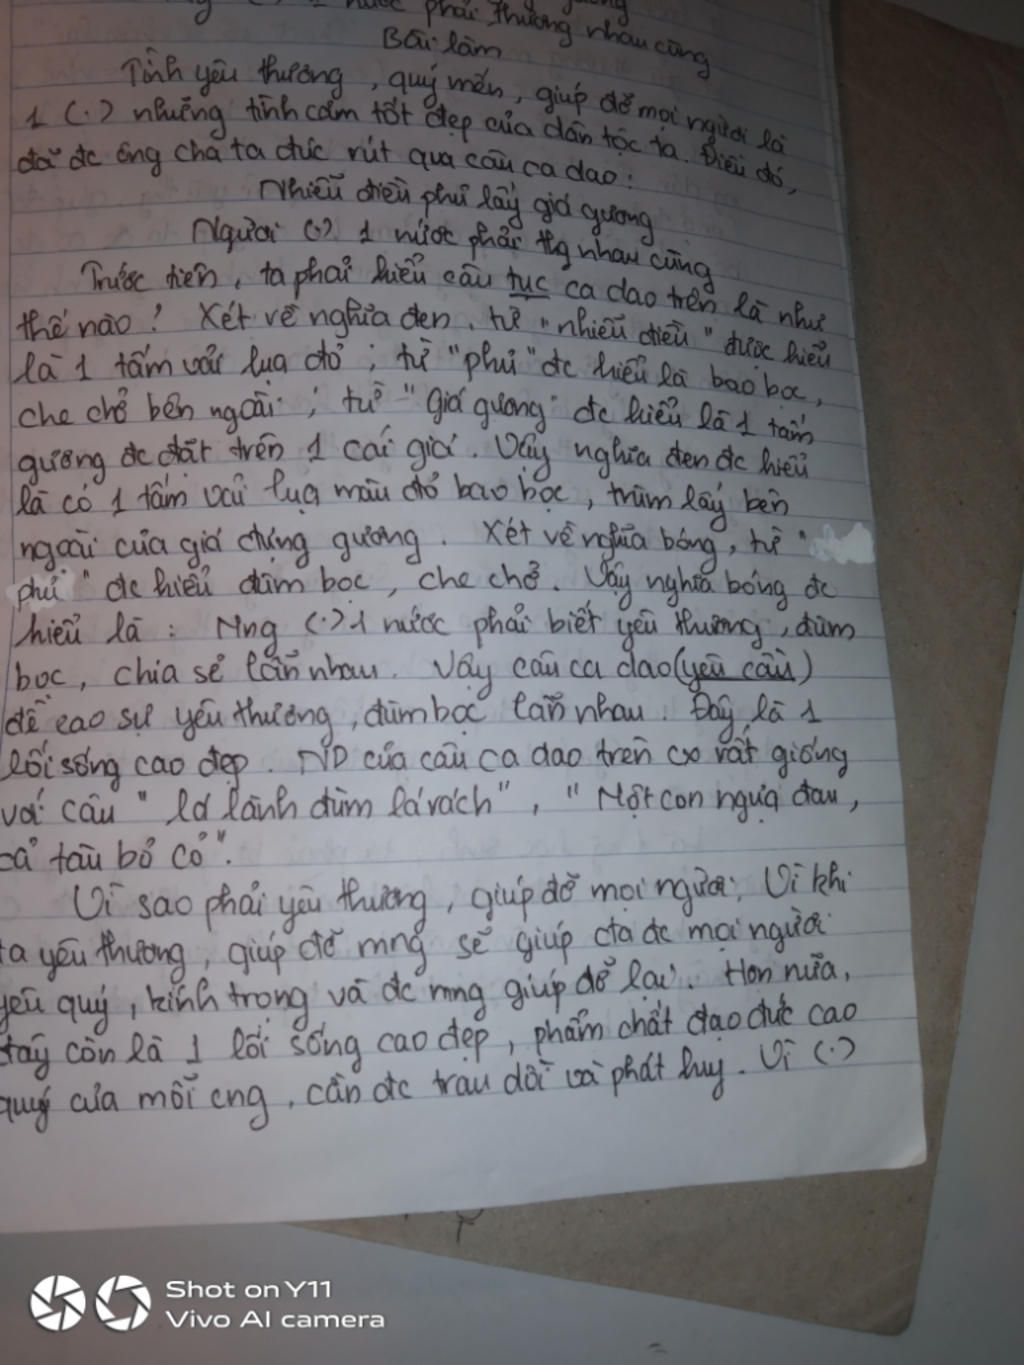 1 nước phải thương nhau cùng
Bài làm
Tình yêu thương, quý mến, giúp đỡ mọi người là
1 (.) những tình cảm tốt đẹp của dân tộc ta. Điều đó,
đã đc ông cha ta đúc rút qua câu ca dao:
Nhiễu điều phủ lấy giá gương
Người (.) 1 nước phải thg nhau cùng
Trước tiên, ta phải hiểu câu tục ca dao trên là như
thế nào? Xét về nghĩa đen, từ "nhiễu điều" được hiểu
là 1 tấm vải lụa đỏ; từ "phủ" đc hiểu là bao bọc,
che chở bên ngoài; từ "giá gương" đc hiểu là 1 tấm
gương đc đặt trên 1 cái giá. Vậy nghĩa đen đc hiểu
là có 1 tấm vải lụa màu đỏ bao bọc, trùm lấy bên
ngoài của giá đựng gương. Xét về nghĩa bóng, từ "
phủ" đc hiểu đùm bọc, che chở. Vậy nghĩa bóng đc
hiểu là: Mng (.) 1 nước phải biết yêu thương, đùm
bọc, chia sẻ lẫn nhau. Vậy câu ca dao (yêu cầu)
đề cao sự yêu thương, đùm bọc lẫn nhau. Đây là 1
lối sống cao đẹp. ND của câu ca dao trên cx rất giống
với câu "lá lành đùm lá rách", "Một con ngựa đau,
cả tàu bỏ cỏ".
Vì sao phải yêu thương, giúp đỡ mọi người; Vì khi
ta yêu thương, giúp đỡ mng sẽ giúp cta đc mọi người
yêu quý, kính trọng và đc mng giúp đỡ lại. Hơn nữa,
đây còn là 1 lối sống cao đẹp, phẩm chất đạo đức cao
quý của mỗi cng, cần đc trau dồi và phát huy. Vì (.)
Shot on Y11
Vivo AI camera